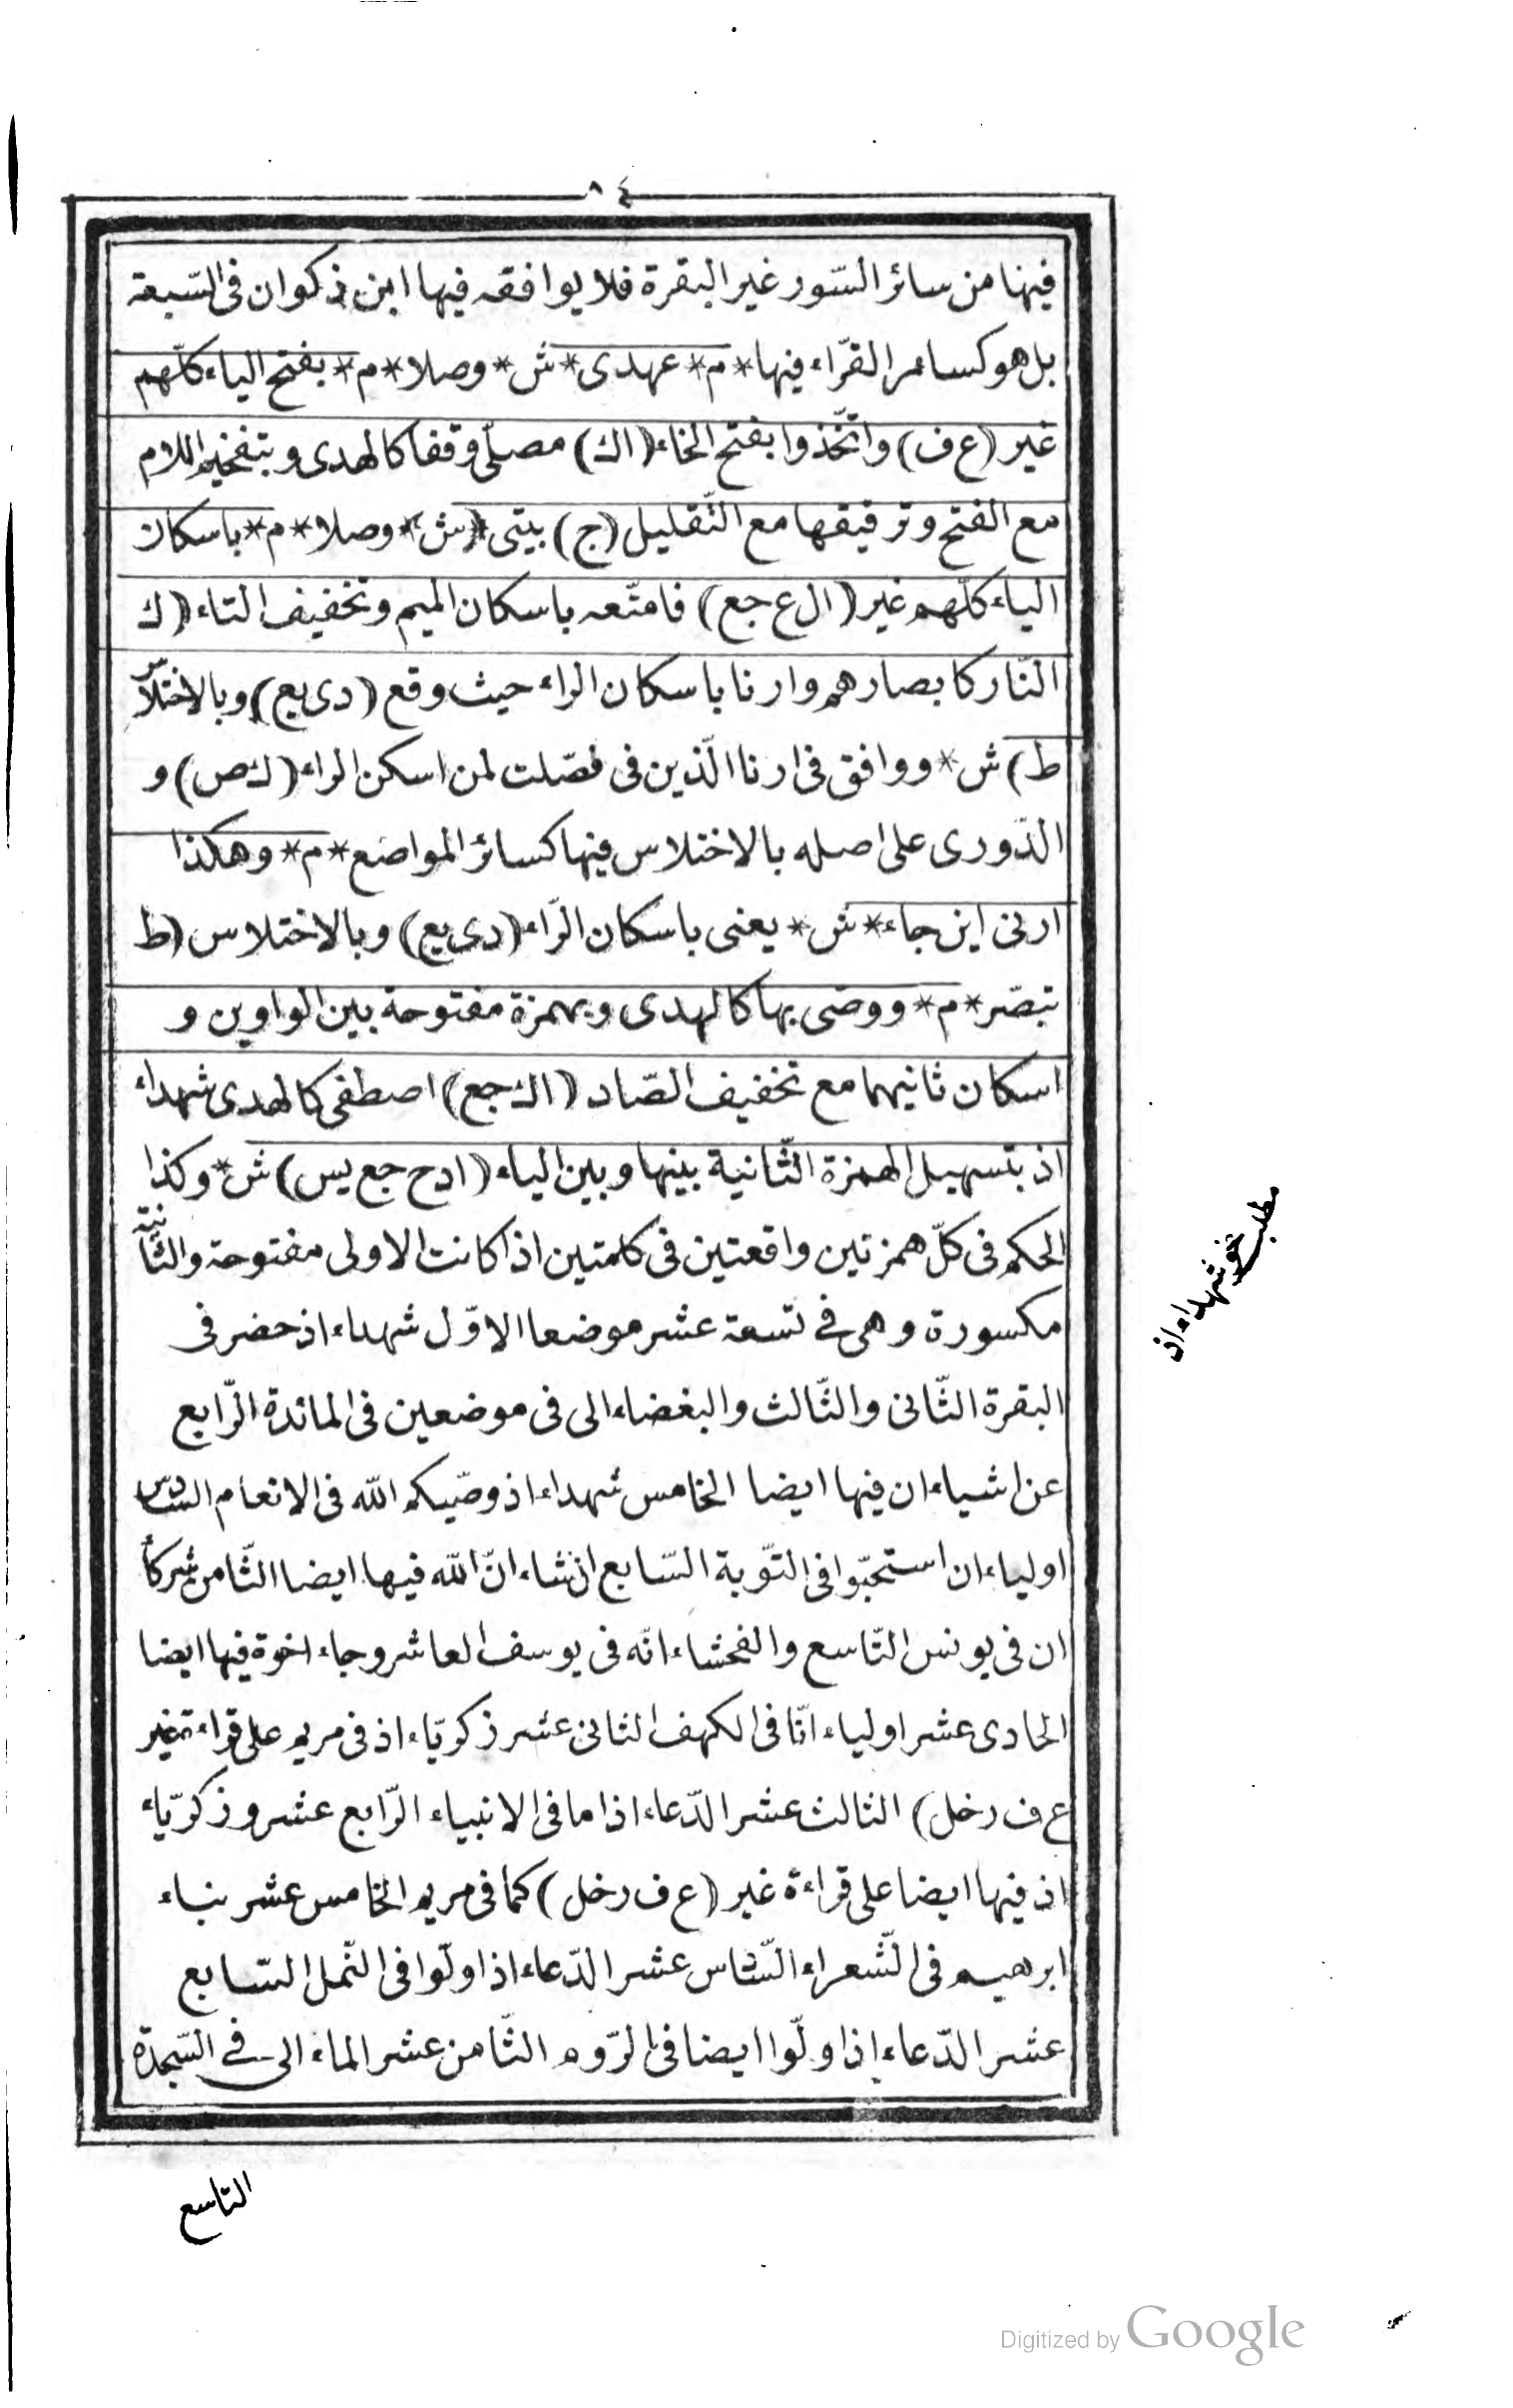 ٨٤
فيها من سائر السّور غير البقرة فلا يوافقه فيها ابن ذكوان فى السّبعة
بل هو كسائر القرّاء فيها * م * عهدى * ش * وصلا * م * بفتح الياء كلّهم
غير (ع ف) واتّخذوا بفتح الخاء (اك) مصلّى وقفا كالهدى وبتفخيم اللام
مع الفتح وترقيقها مع التّقليل (ج) بيتى * ش * وصلا * م * باسكان
الياء كلّهم غير (ال ع جع) فامتّعه باسكان الميم وتخفيف التاء (ك
النّار كابصارهم وارنا باسكان الراء حيث وقع (دى يع) وبالاختلاس
ط) ش * ووافق فى ارنا الّذين فى فصّلت لمن اسكن الراء (ك ص) و
الدّورى على اصله بالاختلاس فيها كسائر المواضع * م * وهكذا
ارنى اين جاء * ش * يعنى باسكان الرّاء (دى يع) وبالاختلاس (ط
تبصّر * م * ووصّى بها كالهدى وبهمزة مفتوحة بين الواوين و
اسكان ثانيهما مع تخفيف الصّاد (اك جع) اصطفى كالهدى شهداء
اذ بتسهيل الهمزة الثّانية بينها وبين الياء (ادح جع يس) ش * وكذا
الحكم فى كلّ همزتين واقعتين فى كلمتين اذا كانت الاولى مفتوحة والثّانية
مكسورة وهى فى تسعة عشر موضعا الاوّل شهداء اذ حضر فى
البقرة الثّانى والثّالث والبغضاء الى فى موضعين فى المائدة الرّابع
عن اشياء ان فيها ايضا الخامس شهداء اذ وصّيكم الله فى الانعام السّادس
اولياء ان استحبّوا فى التّوبة السّابع ان شاء انّ الله فيها ايضا الثّامن شركاء
ان فى يونس التّاسع والفحشاء انّه فى يوسف العاشر وجاء اخوة فيها ايضا
الحادى عشر اولياء انّا فى الكهف الثانى عشر زكريّاء اذ فى مريم على قراءة غير
ع ف رخل) الثالث عشر الدّعاء اذا ما فى الانبياء الرّابع عشر وزكريّاء
اذ فيها ايضا على قراءة غير (ع ف رخل) كما فى مريم الخامس عشر نباء
ابرهيم فى الشّعراء السّادس عشر الدّعاء اذا ولّوا فى النّمل السّابع
عشر الدّعاء اذا ولّوا ايضا فى الرّوم الثّامن عشر الماء الى فى السّجدة
مطلب نحو شهداء اذ
التاسع
Digitized by Google